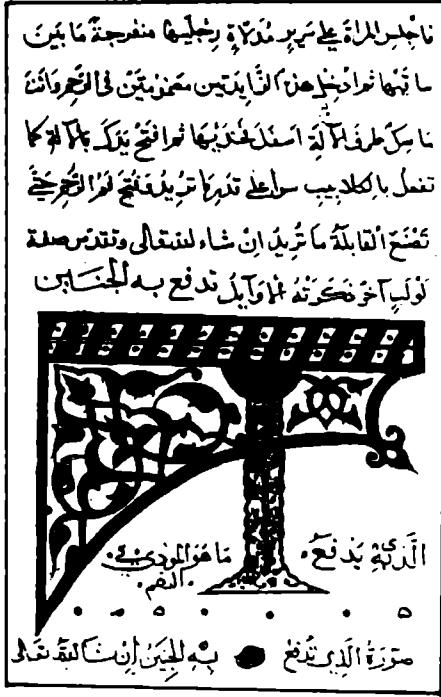 فاجلس المرأة على سرير مُدلاة رجليها منفرجة ما بين
ساقيها ثم ادخل هذه الزايدتين مضمومتين في الرحم وانت
ماسك طرف الآلة اسفل فخذيها ثم افتح يدك بالآلة كما
تفعل بالكلاليب سوا على قدر ما تريد وتفتح فم الرحم حتى
تصنع القابلة ما تريد ان شاء الله تعالى وتقدس صفة
لولب آخر ذكرته الاوايل تدفع به الجنين
الذي به يدفع ما هو
صورة الذي تدفع به الجنين إن شا الله تعالى